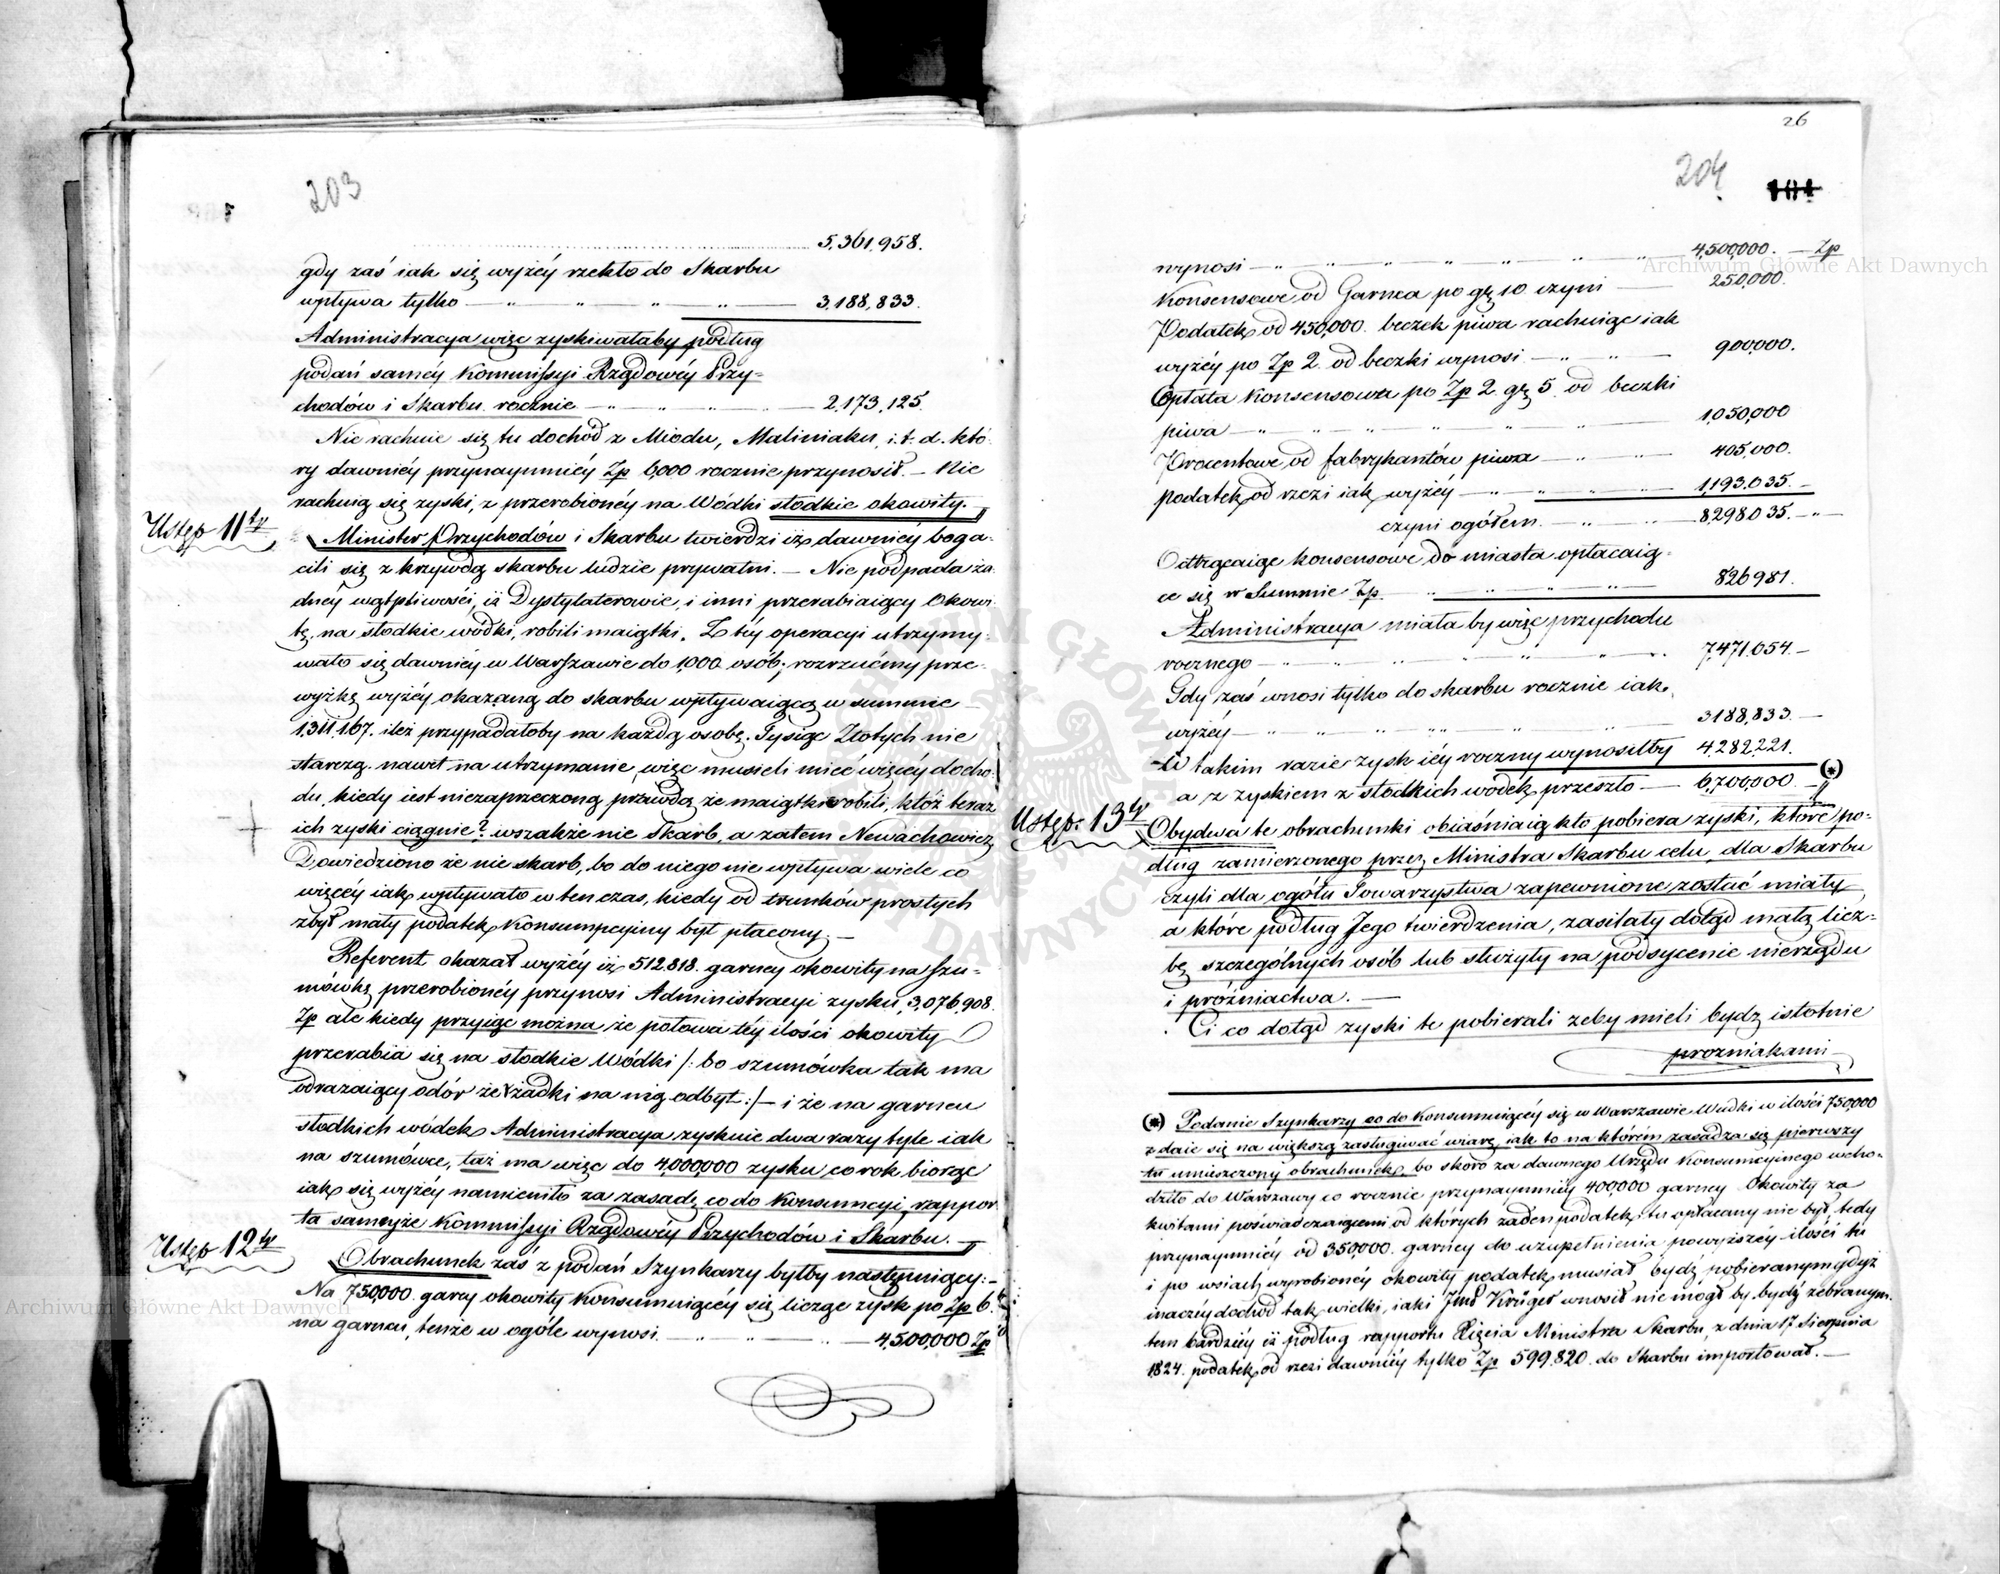 203
5,361,958.
gdy zaś iak się wyżéy rzekło do Skarbu
wpływa tylko — „ „ „ „ — 3,188,833.
Administracya więc zyskiwałaby podług
podań saméy Kommissyi Rządowéy Przy=
chodów i Skarbu rocznie — „ „ „ — 2,173,125.
Nie rachuie się tu dochod z Miodu, Maliniaku, i.t.d. któ-
ry dawniéy przynaymniéy Zp 6,000 rocznie przynosił. — Nie
rachuią się zyski, z przerobionéy na Wódki słodkie okowity.
Ustęp 11ty
Minister Przychodów i Skarbu twierdzi iż dawniéy boga-
cili się z krzywdą skarbu ludzie prywatni. — Nie podpada ża-
dnéy wątpliwości, iż Dystylaterowie, i inni przerabiaiący Okowi-
tę, na słodkie wódki, robili maiątki. Z téy operacyi utrzymy-
wało się dawniéy w Warszawie do 1,000 osób; rozrzućmy prze-
wyżkę wyżéy okazaną do skarbu wpływaiącą w summie
1,311,167. ileż przypadałoby na każdą osobę. Tysiąc Złotych nie
starczą nawet na utrzymanie, więc musieli mieć więcéy docho-
du, kiedy iest niezaprzeczoną prawdą że maiątki robili, któż teraz
ich zyski ciągnie? wszakże nie Skarb, a zatem Newachowicz
Dowiedziono że nie skarb, bo do niego nie wpływa wiele co
więcéy iak wpływało w ten czas, kiedy od trunków prostych
zbyt mały podatek Konsumpcyiny był płacony. —
Referent okazał wyżéy iż 512,818. garncy okowity na szu-
mówkę przerobionéy przynosi Administracyi zysku, 3,076,908.
Zp ale kiedy przyiąć można że połowa téy ilości okowity
przerabia się na słodkie Wódki /: bo szumówka tak ma
odrazaiący odór że rzadki na nią odbyt :/ — i że na garncu
słodkich wódek Administracya zyskuie dwa razy tyle iak
na szumówce, taż ma więc do 4,000,000 zysku, co rok biorąc
iak się wyżéy namieniło za zasadę co do Konsumcyi, rappor
ta samejże Kommissyi Rządowéy Przychodów i Skarbu. —
Ustęp 12ty
Obrachunek zaś z podań Szynkarzy byłby następuiący: —
Na 750,000 garcy okowity Konsumuiącéy się licząc zysk po Zp 6.
na garncu, tenże w ogóle wynosi — „ „ „ — 4,500,000 Zp
26
204
104
wynosi — „ „ „ „ „ „ 4,500,000. — Zp
Konsensowe od Garnca po gr 10 czyni — 250,000.
Podatek od 450,000. beczek piwa rachuiąc iak
wyżéy po Zp 2. od beczki wynosi — „ „ — 900,000.
Opłata Konsensowa po Zp 2. gr 5. od beczki
piwa — „ „ „ „ „ „ — 1,050,000
Procentowe od fabrykantów piwa — „ — 405,000.
podatek od rzezi iak wyżéy — „ „ „ — 1,193,035. —
czyni ogółem. — „ „ 8,298,035. — „ —
Odtrącaiąc konsensowe do miasta opłacaią-
ce się w Summie Zp „ „ „ „ — 826981.
Administracya miałaby więc przychodu
rocznego — „ „ „ „ „ 7,471,054. —
Gdy zaś wnosi tylko do skarbu rocznie iak
wyżéy — „ „ „ „ „ „ — 3,188,833. —
w takim razie zysk iéy roczny wynosiłby 4,282,221.
a z zyskiem z słodkich wódek przeszło — 6,700,000. — „ (*)
Ustęp. 13ty
Obydwa te obrachunki obiaśniaią kto pobiera zyski, które po-
dług zamierzonego przez Ministra Skarbu celu, dla Skarbu
czyli dla ogółu Towarzystwa zapewnione zostać miały,
a które podług Jego twierdzenia, zasilały dotąd małą licz-
bę szczególnych osób lub służyły na podsycenie nierządu
i próżniactwa. —
Ci co dotąd zyski te pobierali żeby mieli bydz istotnie
prozniakami
(*) Podanie Szynkarzy co do Konsumuiącéy się w Warszawie Wudki w ilości 750,000
zdaie się na większą zasługiwać wiarę, iak to na którém zasadza się pierwszy
tu umieszczony obrachunek, bo skoro za dawnego Urzędu Konsumcyinego wcho-
dziło do Warszawy co rocznie przynaymniéy 400,000 garncy Okowity za
kwitami poświadczaiącemi od których żaden podatek tu opłacany nie był, tedy
przynaymniéy od 350,000. garncy do uzupełnienia powyższéy ilości tu
i po wsiach wyrobionéy okowity podatek musiał bydź pobieranym gdyż
inaczéy dochod tak wielki, iaki Jmć Krüger wnosił nie mógł by bydź zebranym
tem bardziéy iż podług rapportu Xięcia Ministra Skarbu, z dnia 17 Sierpnia
1824. podatek od rzezi dawniéy tylko Zp 599,820. do Skarbu importował. —
Archiwum Główne Akt Dawnych
Archiwum Główne Akt Dawnych
ARCHIWUM GŁÓWNE AKT DAWNYCH